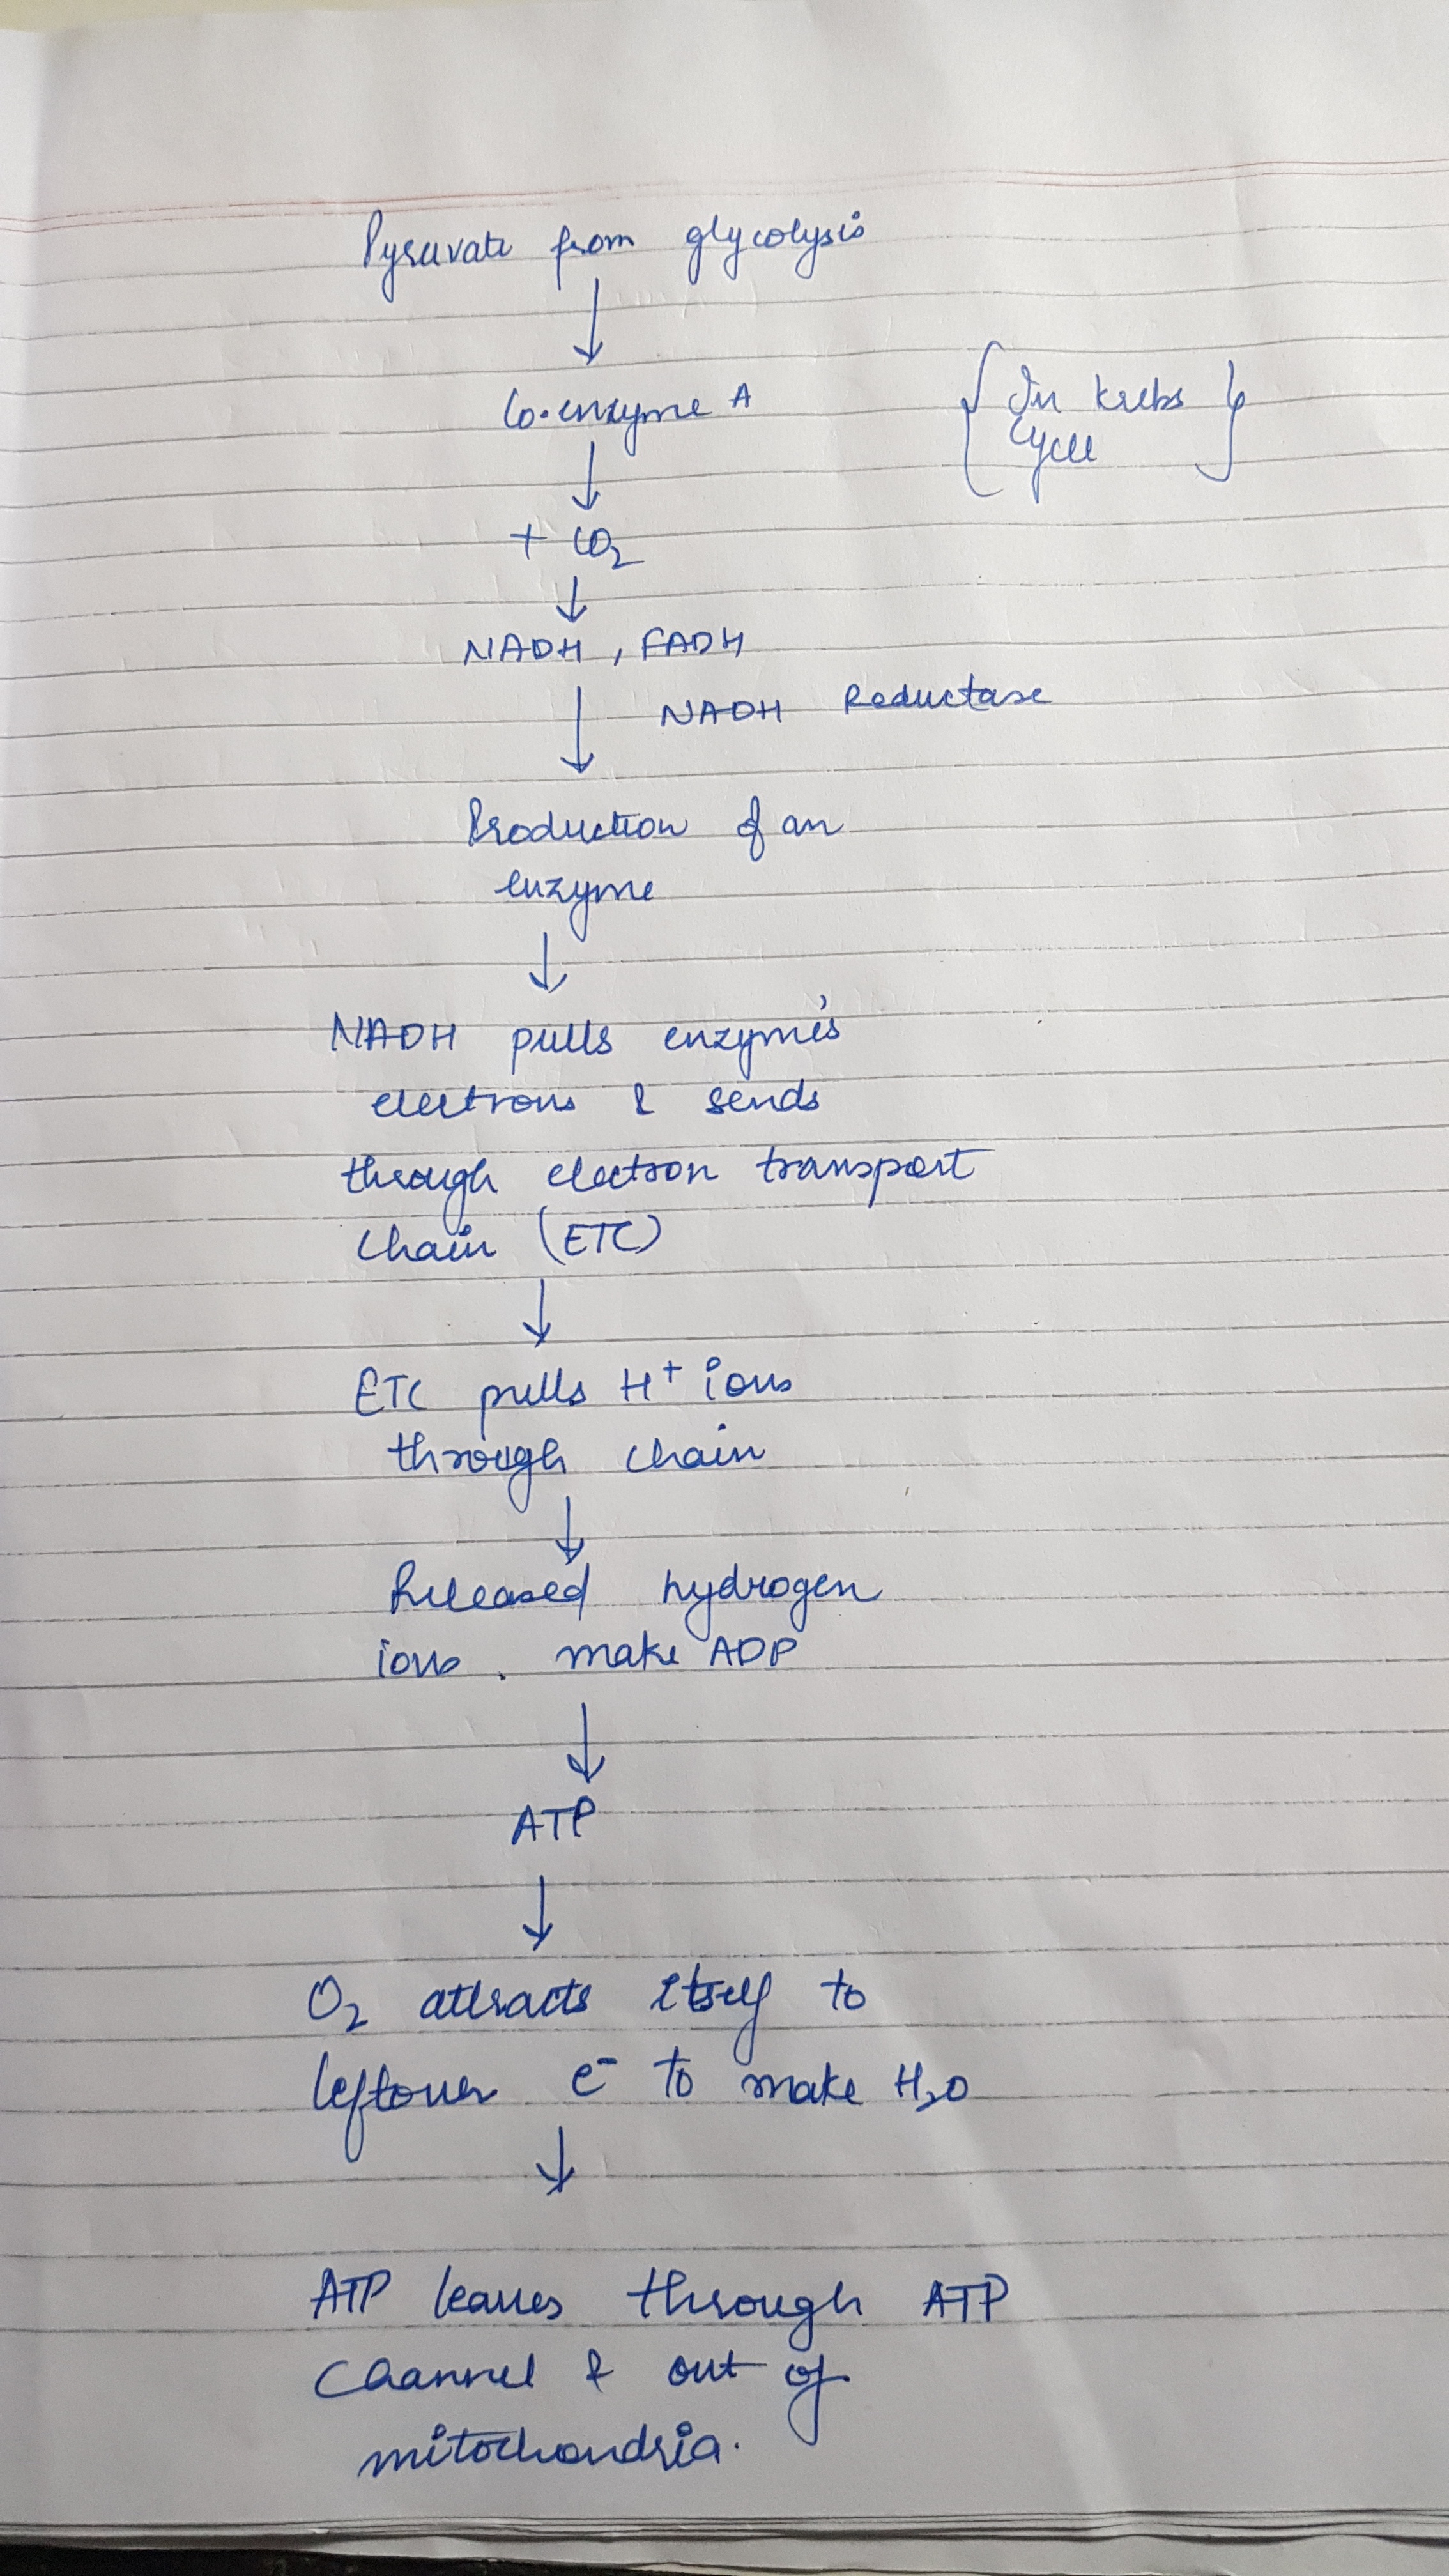 Pyruvate from glycolysis
↓
Co-enzyme A
{ In krebs }
cycle
↓
+ CO₂
↓
NADH , FADH
↓ NADH Reductase
Production of an
enzyme
↓
NADH pulls enzyme's
electrons & sends
through electron transport
chain (ETC)
↓
ETC pulls H⁺ ions
through chain
↓
Released hydrogen
ions . make ADP
↓
ATP
↓
O₂ attracts itself to
leftover e⁻ to make H₂O
↓
ATP leaves through ATP
Channel & out of
mitochondria.